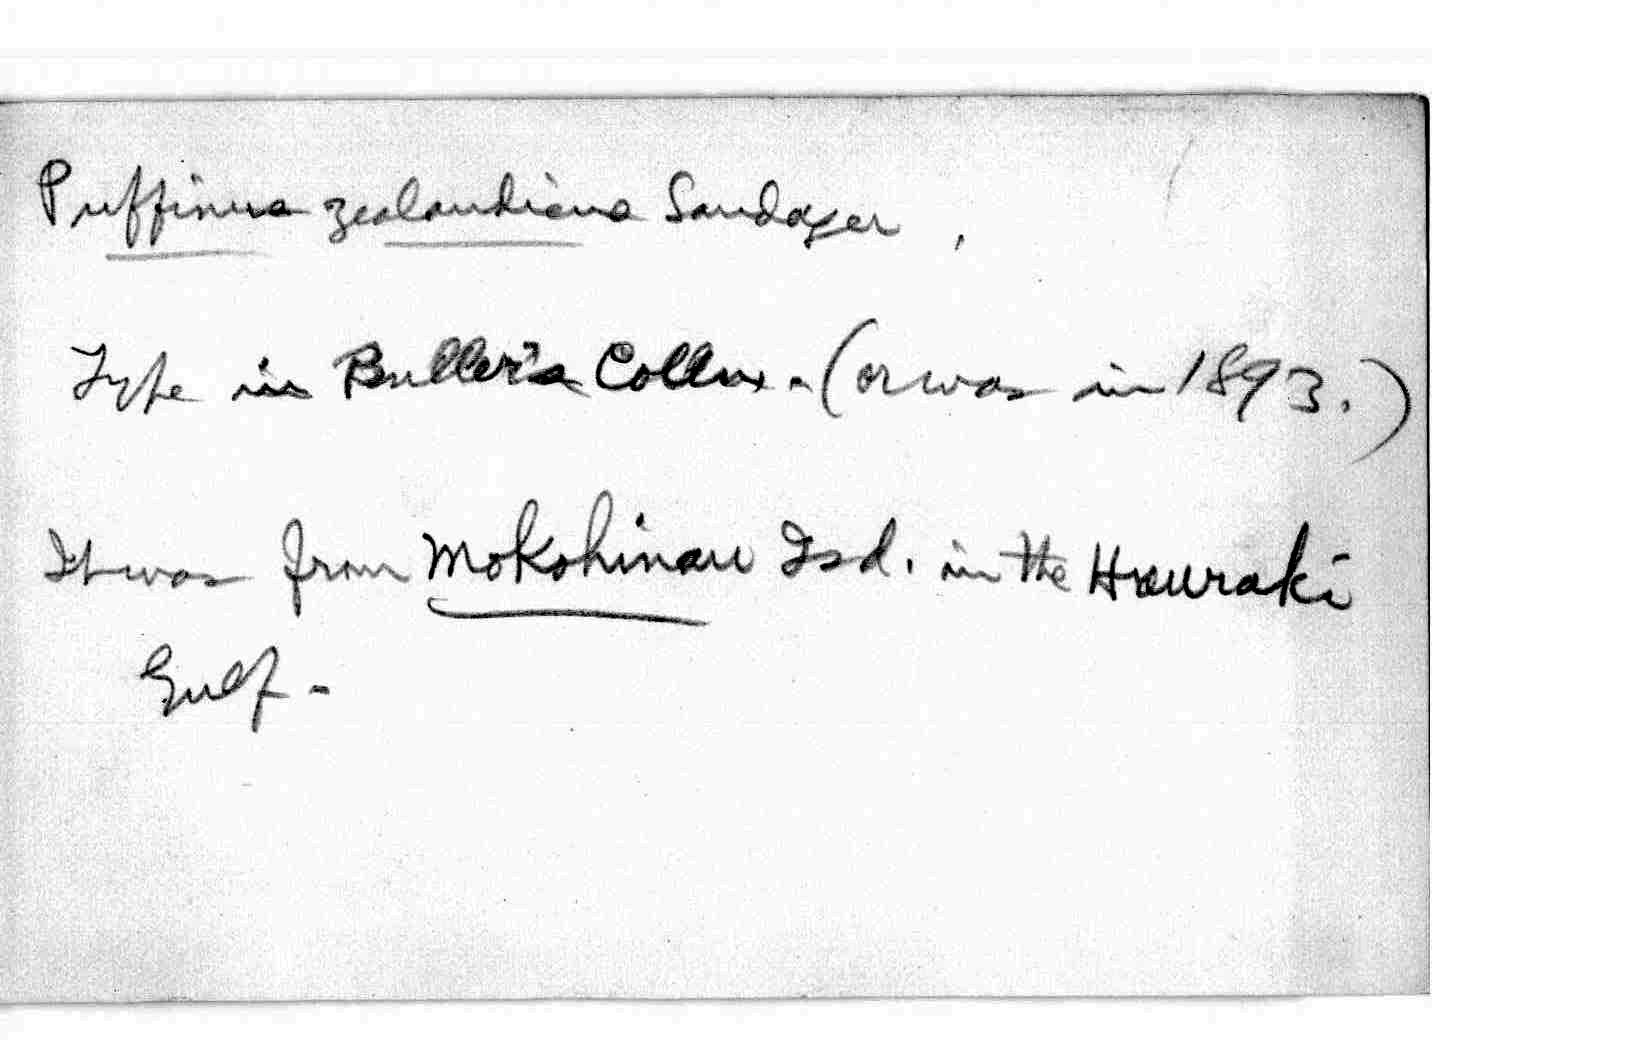 Puffinus zealandicus Sandager,
Type in Buller's Colln. (or was in 1893.)
It was from Mokohinau Isd. in the Hauraki
Gulf.